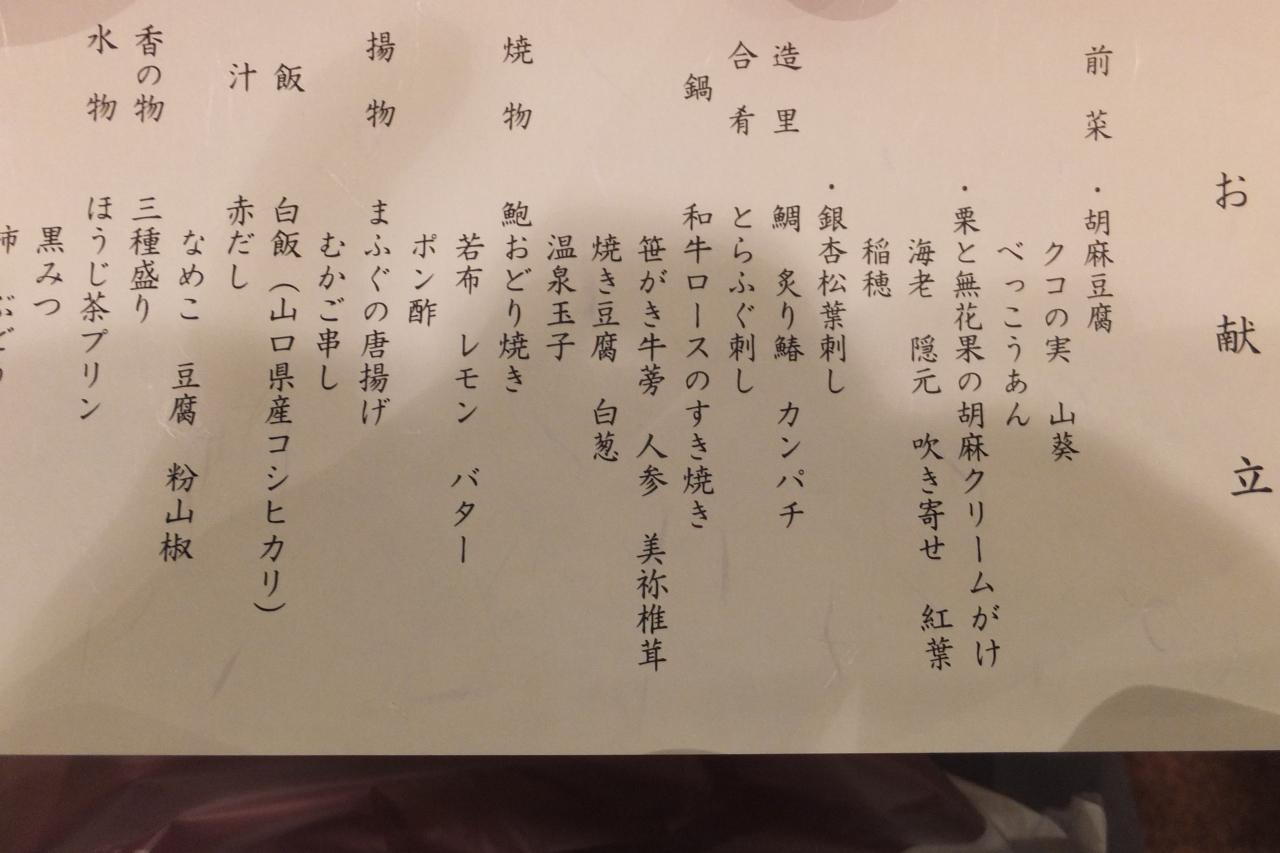 お献立
前菜 ・胡麻豆腐
クコの実 山葵
べっこうあん
・栗と無花果の胡麻クリームがけ
海老 隠元 吹き寄せ 紅葉
稲穂
・銀杏松葉刺し
造里 鯛 炙り鰆 カンパチ
合肴 とらふぐ刺し
鍋 和牛ロースのすき焼き
笹がき牛蒡 人参 美祢椎茸
焼き豆腐 白葱
温泉玉子
焼物 鮑おどり焼き
若布 レモン バター
ポン酢
揚物 まふぐの唐揚げ
むかご串し
飯 白飯（山口県産コシヒカリ）
汁 赤だし
なめこ 豆腐 粉山椒
香の物 三種盛り
水物 ほうじ茶プリン
黒みつ